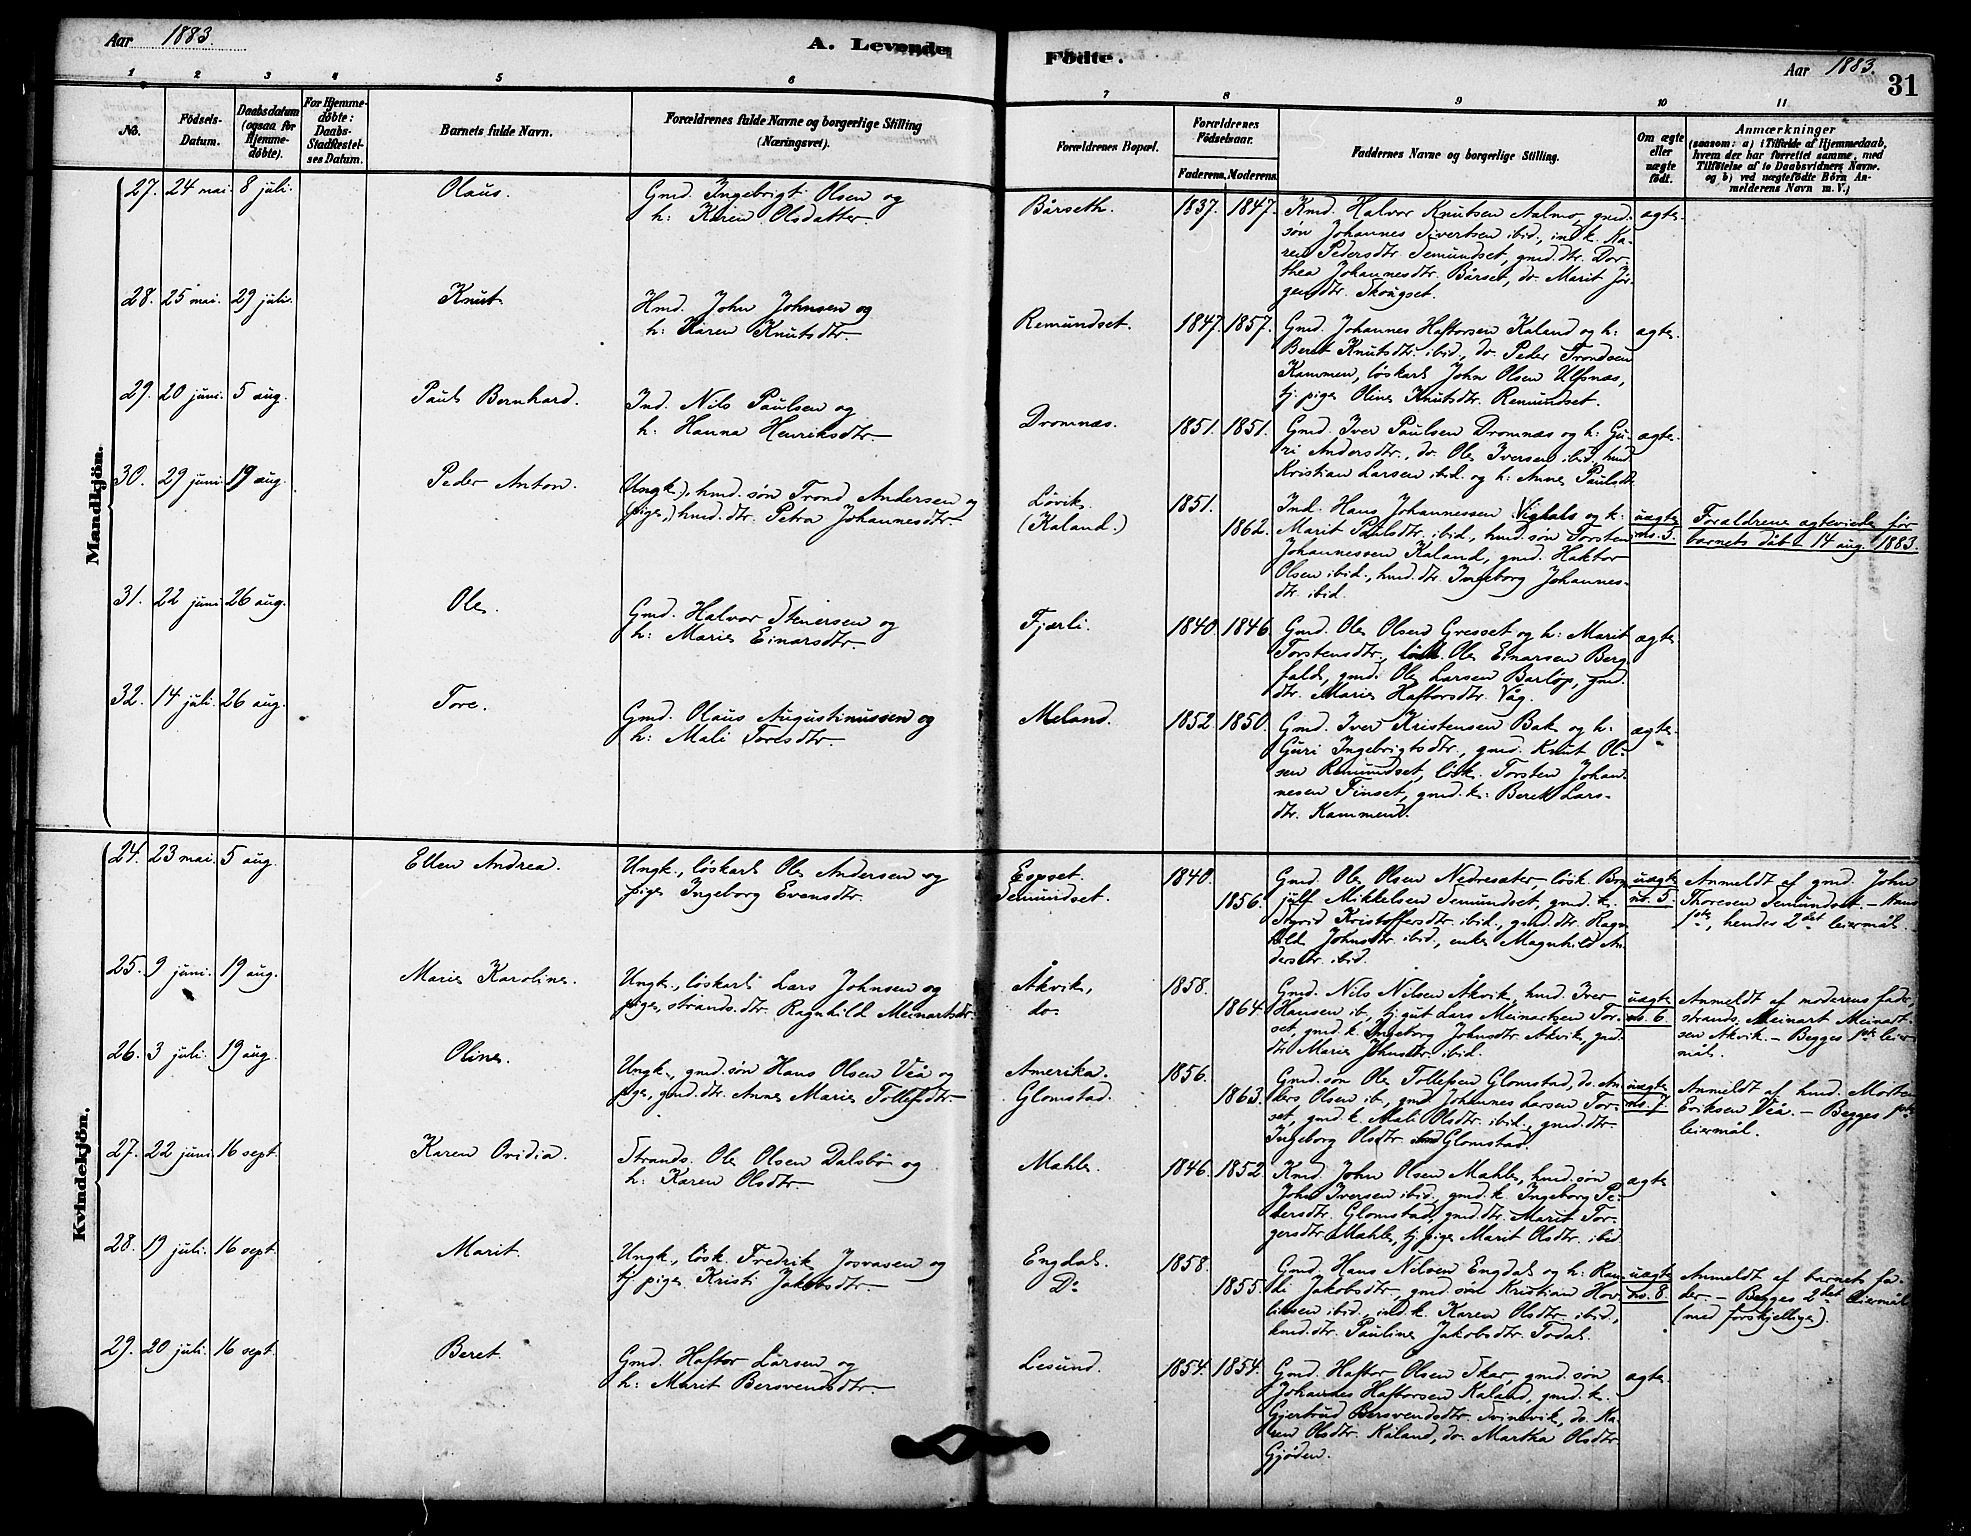 Aar 1883.
A. Levende Födte.
Aar 1883.
31
1 2 3 4 5 6 7 8 9 10 11
No.
Födsels-
Datum.
Daabsdatum
(ogsaa for
Hjemme-
døbte).
For Hjemme-
døbte:
Daabs-
Stadfæstel-
ses Datum.
Barnets fulde Navn.
Forældrenes fulde Navne og borgerlige Stilling
(Næringsvei).
Forældrenes Bopæl.
Forældrenes
Födselsaar.
Faderens. Moderens.
Faddernes Navne og borgerlige Stilling.
Om ægte
eller
uægte
födt.
Anmærkninger
(saasom: a) i Tilfælde af Hjemmedaab,
hvem der har forrettet samme, med
Tilföielse af to Daabsvidners Navne.
og b) ved uægtefödte Börn An-
melderens Navn m. V.)
Mandkjön.
27. 24 mai. 8 juli. Olaus. Gmd. Ingebrigt Olsen og
h: Karen Olsdatter.
Bårseth. 1837. 1847. Kmd. Halvor Knutsen Aalmo, gmd.
søn Johannes Sivertsen ibid., ind. k. Ka-
ren Pedersdtr. Semundset, gmd. dtr. Dor-
thea Johannesdtr. Bårset, do. Marit Jør-
gensdtr. Skougset.
ægte.
28. 25 mai. 29 juli. Knut. Hmd. John Johnsen og
h: Karen Knutsdtr.
Remundset. 1847. 1857. Gmd. Johannes Haftorsen Kaland og h:
Beret Knutsdtr. ibid., do. Peder Trondsen
Kammen, løskarl John Olsen Ulfsnæs,
tj. pige Oline Knutsdtr. Remundset.
ægte.
29. 20 juni. 5 aug. Paul Bernhard. Ind. Nils Paulsen og
h: Hanna Henriksdtr.
Dromnæs. 1851. 1851. Gmd. Iver Paulsen Dromnæs og h: Gu-
ri Andersdtr., do. Ole Iversen ibid., hmd.
Kristian Larsen ibid. og h: Anne Paulsdt.
ægte.
30. 29 juni. 19 aug. Peder Anton. (Ungk.), hmd. søn Trond Andersen og
(pige,) hmd. dtr. Petra Johannesdtr.
Løvik.
(Kaland.)
1851.
1862.
Ind. Hans Johannessen Vighals og k:
Marit Paulsdtr. ibid., hmd. søn Torsten
Johannessen Kaland, gmd. Haktor
Olsen ibid., hmd. dtr. Ingeborg Johannes-
dtr. ibid.
uægte
no. 5.
Forældrene ægteviede før
barnets dåb – 14 aug. 1883.
31. 22 juni 26 aug. Ole. Gmd. Halvor Stenersen og
h: Marie Einarsdtr.
Fjærli. 1840. 1846. Gmd. Ole Olsen Gresset og h: Marit
Torstensdtr., løsk. Ole Einarsen Berg-
fald, gmd. Ole Larsen Barløp, gmd.
dtr. Marie Haftorsdtr. Våg.
ægte.
32. 14 juli. 26 aug. Tore. Gmd. Olaus Augustinussen og
h: Mali Toresdtr.
Meland. 1852. 1850. Gmd. Iver Kristensen Bak og h:
Guri Ingebrigtsdtr., gmd. Knut Ol-
sen Remundset, løsk. Torsten Johan-
nesen Finset, gmd. k: Beret Lars-
dtr. Kammen.
ægte.
Kvindekjön.
24. 23 mai. 5 aug. Ellen Andrea. Ungk., løskarl Ole Andersen og
pige Ingeborg Evensdtr.
Espset.
Semundset.
1840.
1856.
Gmd. Ole Olsen Nedresæter, løsk. Bry-
julf Mikkelsen Semundset, gmd. k.
Sigrid Kristoffersdtr. ibid., gmd. dtr. Ragn-
hild Johnsdtr. ibid., enke Magnhild An-
dersdtr. ibid.
uægte
no. 5.
Anmeldt af gmd. John
Thoresen Semundset. – Hans
1ste, hendes 2det leiermål.
25. 9 juni. 19 aug. Marie Karoline. Ungk., løskarl Lars Johnsen og
pige, strands. dtr. Ragnhild Meinartsdtr.
Åkvik,
do.
1858.
1864.
Gmd. Nils Nilsen Åkvik, hmd. Iver
Hansen ib., tj. gut Lars Meinartsen Tor-
set, gmd. k. Ingeborg Johnsdtr. Åkvik, gmd.
dtr. Marie Johnsdtr. ibid.
uægte
no. 6.
Anmeldt af moderens fader,
strands. Meinart Meinart-
sen Åkvik. – Begges 1ste leier-
mål.
26. 3 juli. 19 aug. Oline. Ungk., gmd. søn Hans Olsen Veå og
pige, gmd. dtr. Anne Marie Tollefsdtr.
Amerika.
Glomstad.
1856.
1863.
Gmd. søn Ole Tollefsen Glomstad, do. An-
ders Olsen ib., gmd. Johannes Larsen Tor-
set, gmd. k. Mali Olsdtr. ibid., gmd. dtr.
Ingeborg Olsdtr. Glomstad.
uægte
no. 7.
Anmeldt af hmd. Morten
Eriksen Veå. – Begges 1ste
leiermål.
27. 22 juni. 16 sept. Karen Ovidia. Strands. Ole Olsen Dalsbø og
h: Karen Olsdtr.
Mahle. 1846. 1852. Kmd. John Olsen Mahle, hmd. søn
John Iversen ibid., gmd. k. Ingeborg Pe-
dersdtr. Glomstad, gmd. dtr. Marit Tor-
gersdtr. Mahle, tj. pige Marit Olsdtr. ibid.
ægte
28. 19 juli. 16 sept. Marit. Ungk., løsk. Fredrik Josvasen og
tj. pige Kristi Jakobsdtr.
Engdal.
Do.
1858.
1855.
Gmd. Hans Nilsen Engdal og h: Ran-
di Jakobsdtr., gmd. søn Kristian Hov-
linsen ibid., ind. k. Karen Olsdtr. ibid.,
hmd. dtr. Pauline Jakobsdtr. Todal.
uægte
no. 8.
Anmeldt af barnets fa-
der. – Begges 2det leiermål
(med forskjellige).
29. 20 juli. 16 sept. Beret. Gmd. Haftor Larsen og
h: Marit Bersvendsdtr.
Lesund. 1854. 1854. Gmd. Haftor Olsen Skar, gmd. søn
Johannes Haftorsen Kaland, gmd. k.
Gjertrud Bersvendsdtr. Svinvik, do. Ka-
ren Olsdtr. Kaland, do. Martha Olsdtr.
Gjøden.
ægte.